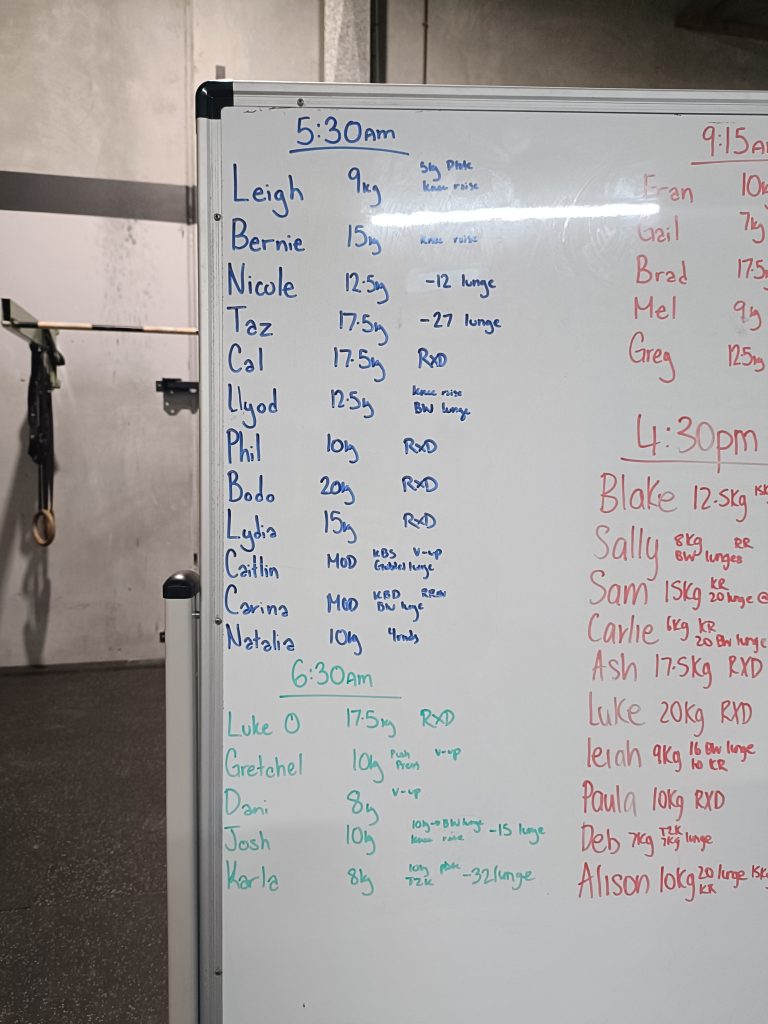 5:30AM
Leigh 9kg 5kg Plate
knee raise
Bernie 15kg knee raise
Nicole 12.5kg -12 lunge
Taz 17.5kg -27 lunge
Cal 17.5kg RXD
Llyod 12.5kg knee raise
BW lunge
Phil 10kg RXD
Bodo 20kg RXD
Lydia 15kg RXD
Caitlin MOD KBS V-up
lunge
Carina MOD KBD
BW lunge
Natalia 10kg 4rnds
6:30AM
Luke O 17.5kg RXD
Gretchel 10kg Push V-up
Press
Dani 8kg V-up
Josh 10kg 10kg→BW lunge -15 lunge
knee raise
Karla 8kg 10kg plate -32 lunge
T2K
9:15A
Fran 10k
Gail 7kg
Brad 17.5k
Mel 9kg
Greg 12.5kg
4:30pm
Blake 12.5kg
Sally 8kg RR
BW lunges
Sam 15kg KR
20 lunge @
Carlie 6kg KR
20 BW lunge
Ash 17.5kg RXD
Luke 20kg RXD
leiah 9kg 16 BW lunge
10 KR
Paula 10kg RXD
Deb 7kg T2K
7kg lunge
Alison 10kg 20 lunge 15k
KR